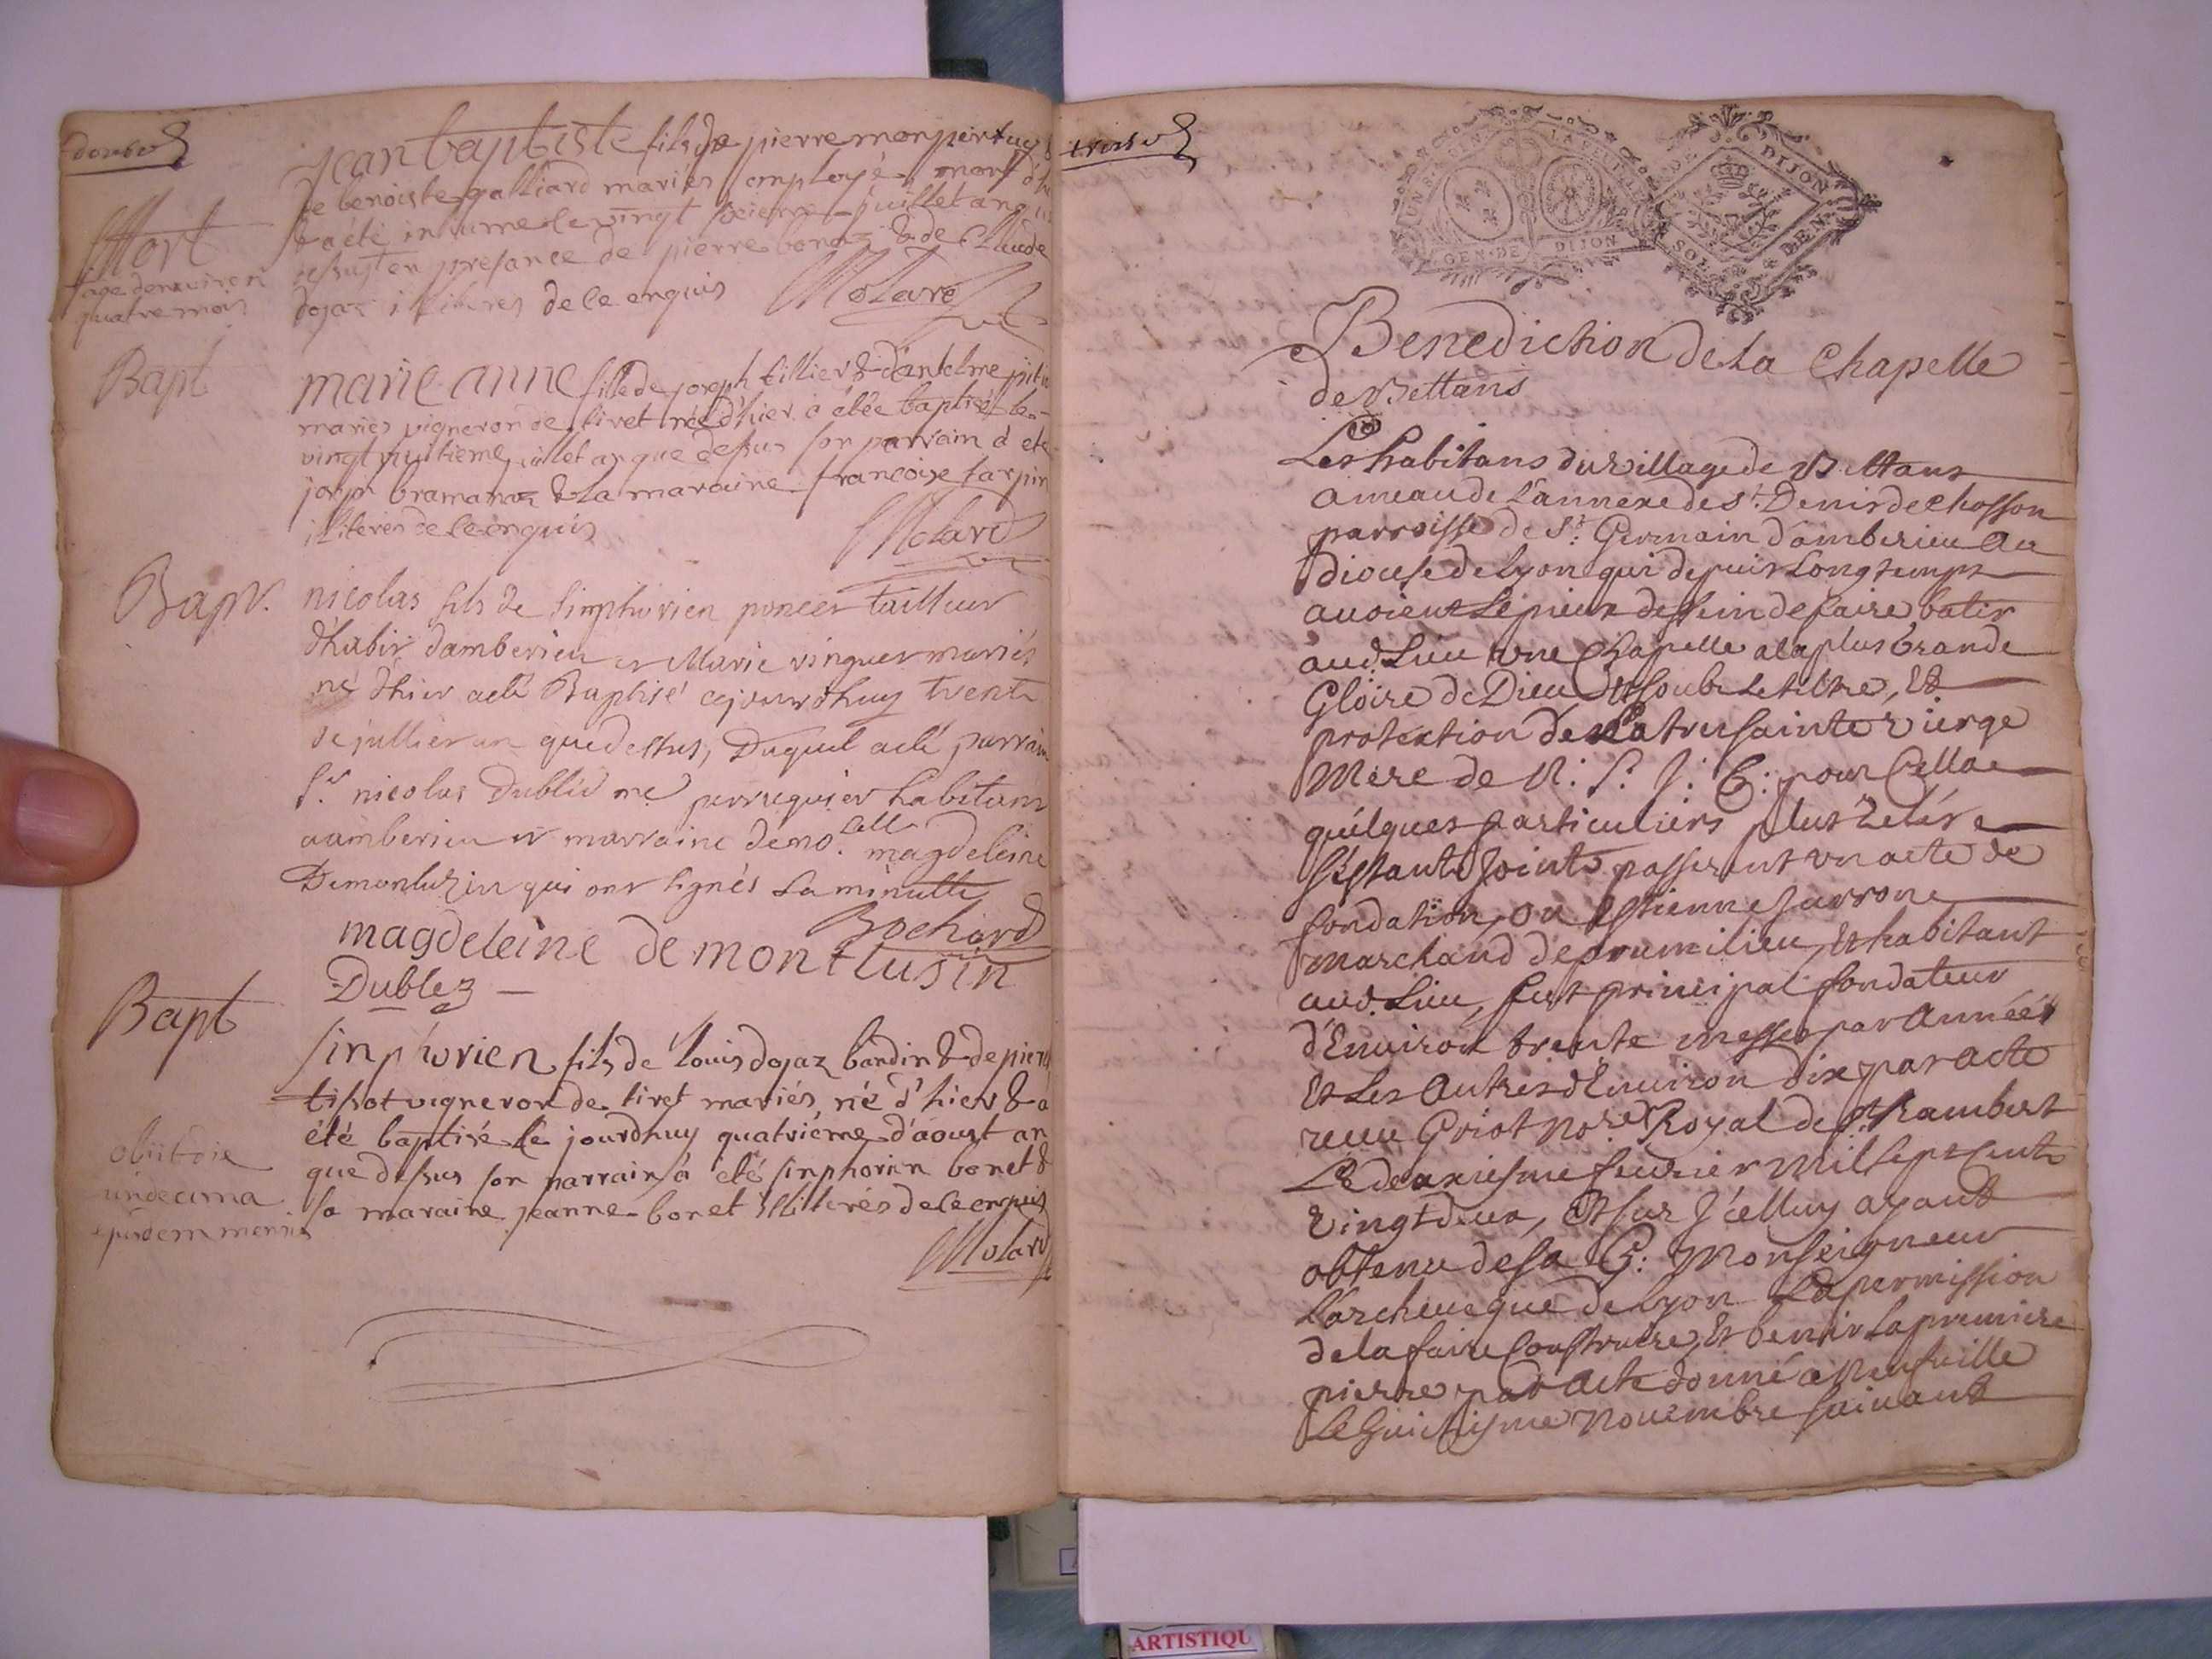 douze
Mort
age denuiron
quatre mois
jean baptiste fils de pierre monpertuy &
de benoiste galliard mariés employé, mort d'hier
& a été inhumé le vingt juillet an que
dessus en presance de pierre bonaz & de Claude
dojaz illiterés de ce enquis Molard
Bapt
marie anne fille de joseph tillier & d'antelme
mariés vigneron de tiret née d'hier a étée baptisé le
vingt huitieme juillet an que dessus son parrain a ete
joseph bramanoz & la maraine francoise tarpin
illiterés de ce enquis Molard
Bapt.
nicolas fils de simphorien poncet tailleur
d'habit damberieu et Marie vinguet mariés
né d'hier a eté Baptisé cejourd'huy trente
de jullier an que dessus, Duquel a eté parrain
Sr. nicolas Dublid me perruquier habitant
a amberieu et marraine demo.lle magdeleine
Demonluzin qui ont signés la minutte
Bochard
magdeleine de montlusin
Dublez
Bapt
sinphorien fils de louis dojaz bardin & de pierr
tissot vigneron de tiret mariés, né d'hier & a
été baptisé le jourdhuy quatrième d'aoust an
que dessus son parrain a été sinphorien bonet &
sa maraine jeanne bonet illiterés de ce enquis
Molard
obiit die
undecima
ejusdem mensis
treise
GEN. DE DIJON
DE DIJON
SOL. DEN.
Benediction de la Chapelle
de Bettans
Les habitans du village de Bettans
ameau de l'annexe de St. Denis de Chosson
parroisse de St. Germain d'amberieu au
diocese de Lyon qui depuis longtemps
auoient le pieux dessein de faire batir
aud. Lieu une Chapelle a la plus Grande
Gloire de Dieu Et soubs le tiltre, Et
protection de La tres sainte vierge
Mere de N: S: J: C: pour Cella
quelques particuliers plus Zelés
s'estants joints passerent un acte de
fondation, ou Estienne Jarrone
marchand de prumilieu, Et habitant
aud. Lieu, fut principal fondateur
d'Enuiron trente messes par Année
Et Les Autres d'Enuiron dix par acte
receu Griot No.re Royal de St. Rambert
Le deuxiesme feurier Mil sept Cents
vingt deux, Et sur J'celluy ayant
obtenu de sa G: Monseigneur
L'archeueque de Lyon La permission
de la faire Construire, Et benir la premiere
pierre par Acte donné a Neufuille
Le huictiesme Nouembre suiuant
ARTISTIQU